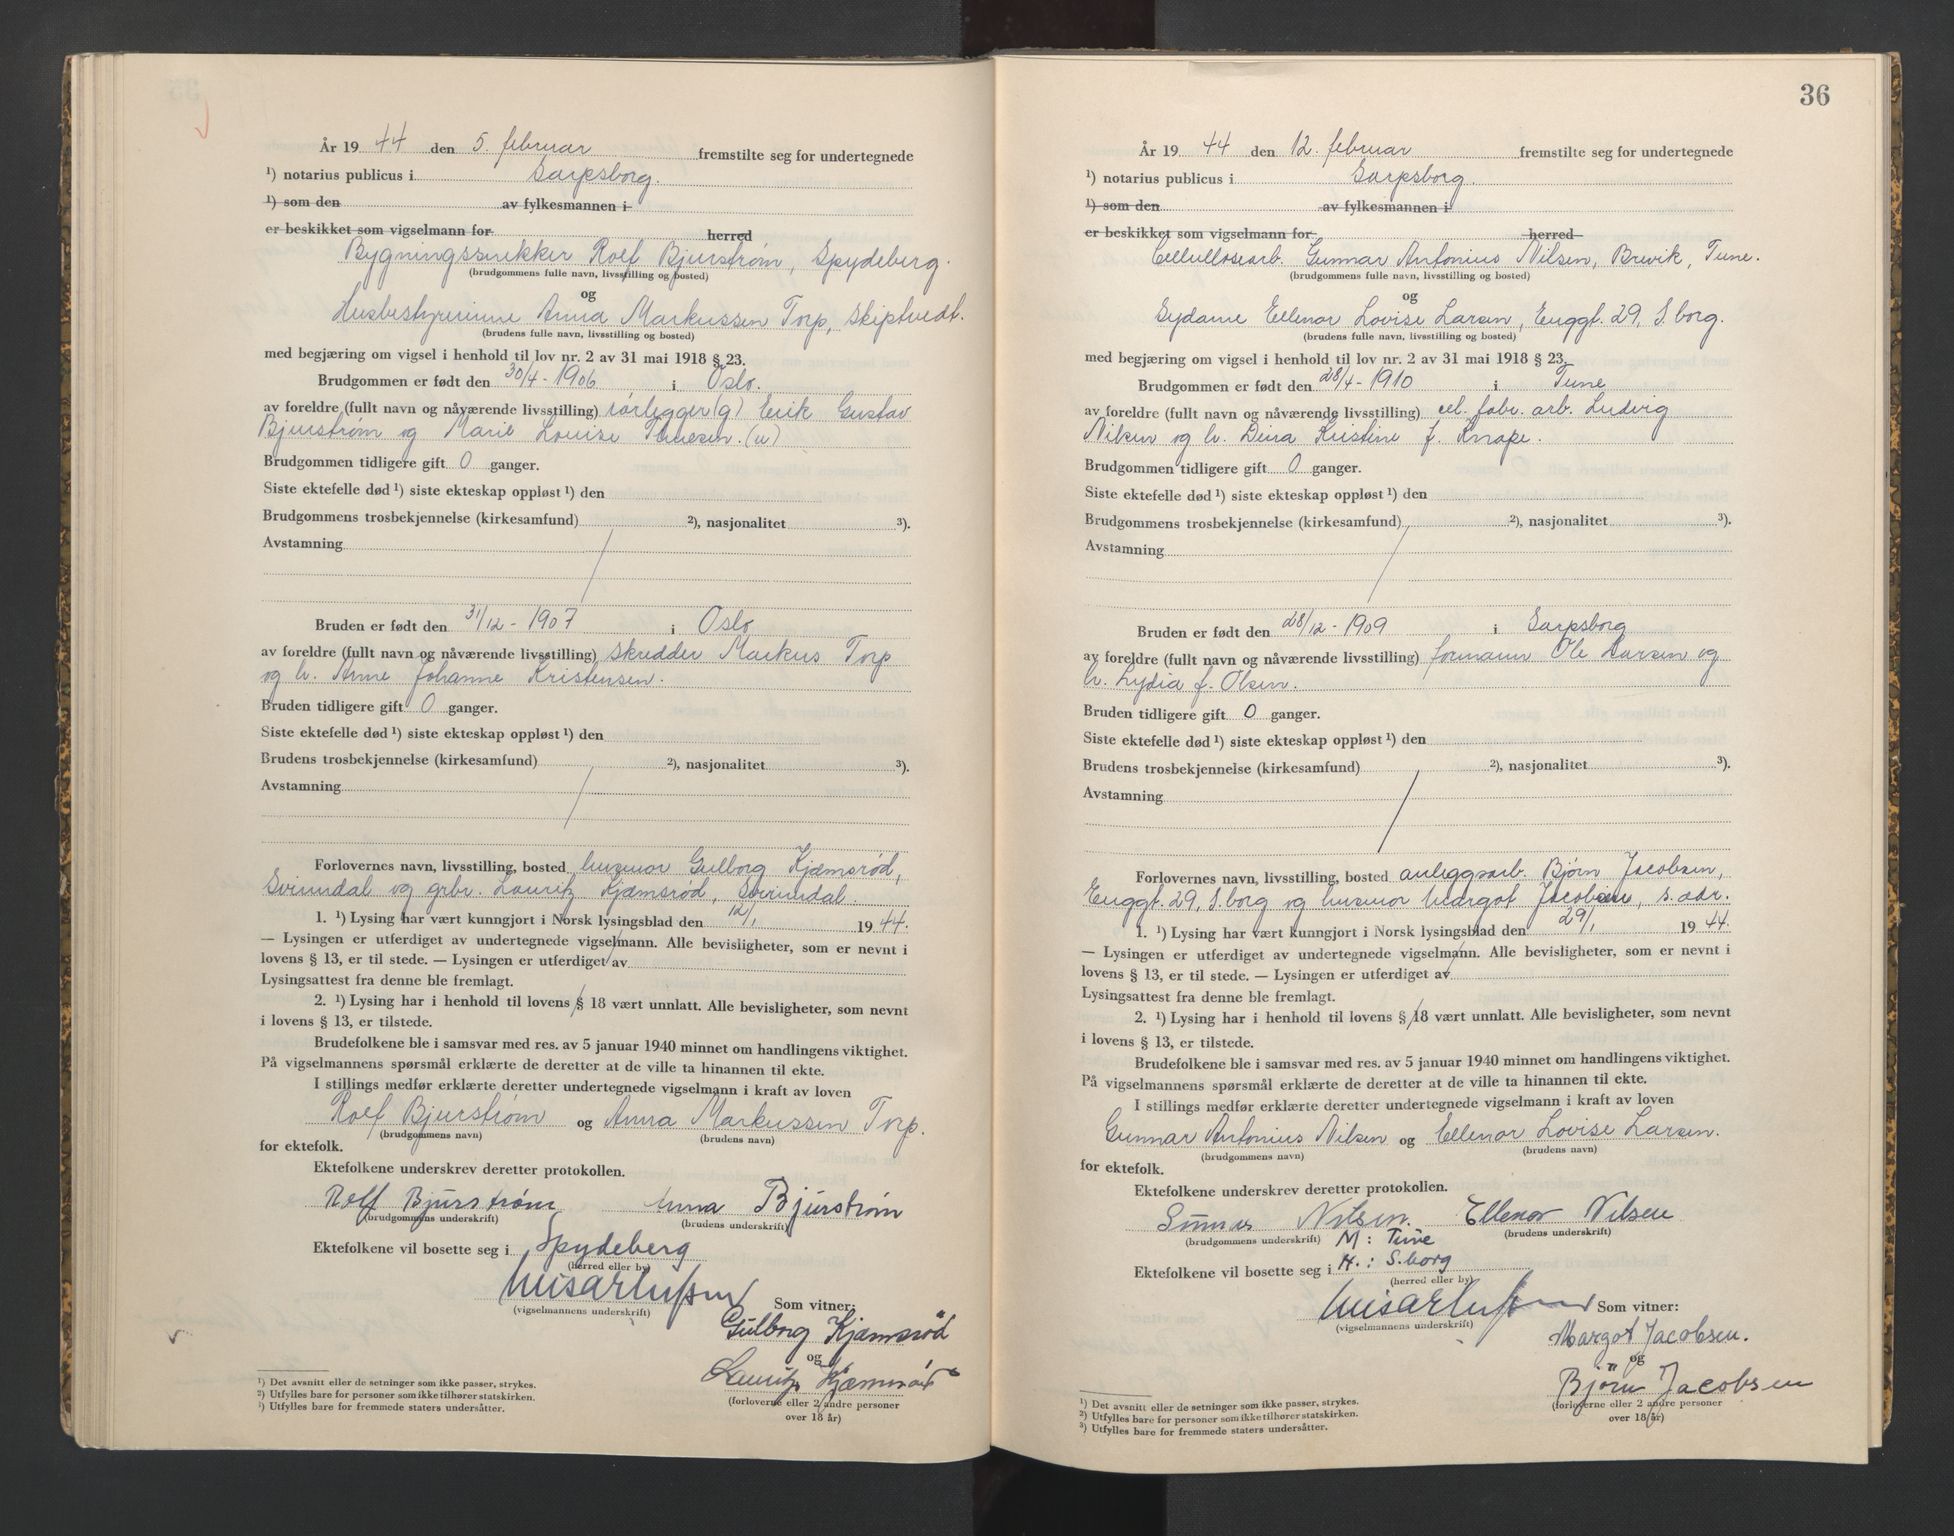 År 19 44 den 5. februar fremstilte seg for undertegnede
¹) notarius publicus i Sarpsborg.
¹) som den av fylkesmannen i
er beskikket som vigselmann for herred
Bygningssnekker Rolf Bjurstrøm, Spydeberg.
(brudgommens fulle navn, livsstilling og bosted)
og
Husbestyrerinne Anna Markussen Torp, Skiptvedt.
(brudens fulle navn, livsstilling og bosted)
med begjæring om vigsel i henhold til lov nr. 2 av 31 mai 1918 § 23.
Brudgommen er født den 30/4 - 1906 i Oslo.
av foreldre (fullt navn og nåværende livsstilling) rørlegger (g) Erik Gustav
Bjurstrøm og Marie Louise (u)
Brudgommen tidligere gift 0 ganger.
Siste ektefelle død ¹) siste ekteskap oppløst ¹) den
Brudgommens trosbekjennelse (kirkesamfund) ²), nasjonalitet ³).
Avstamning
Bruden er født den 31/12 - 1907 i Oslo
av foreldre (fullt navn og nåværende livsstilling) skredder Markus Torp
og h. Anne Johanne Kristensen.
Bruden tidligere gift 0 ganger.
Siste ektefelle død ¹) siste ekteskap oppløst ¹) den
Brudens trosbekjennelse (kirkesamfund) ²), nasjonalitet ³).
Avstamning
Forlovernes navn, livsstilling, bosted husmor Gulborg Kjæmsrød,
Svinndal og grbr. Lauritz Kjæmsrød, Svinndal.
1. ¹) Lysing har vært kunngjort i Norsk lysingsblad den 12/1 19 44.
— Lysingen er utferdiget av undertegnede vigselmann. Alle bevisligheter, som er nevnt i
lovens § 13, er til stede. — Lysingen er utferdiget av
Lysingsattest fra denne ble fremlagt.
2. ¹) Lysing har i henhold til lovens § 18 vært unnlatt. Alle bevisligheter, som nevnt
i lovens § 13, er tilstede.
Brudefolkene ble i samsvar med res. av 5 januar 1940 minnet om handlingens viktighet.
På vigselmannens spørsmål erklærte de deretter at de ville ta hinannen til ekte.
I stillings medfør erklærte deretter undertegnede vigselmann i kraft av loven
Rolf Bjurstrøm og Anna Markussen Torp.
(brudgommens navn) (brudens navn)
for ektefolk.
Ektefolkene underskrev deretter protokollen.
Rolf Bjurstrøm Anna Bjurstrøm
(brudgommens underskrift) (brudens underskrift)
Ektefolkene vil bosette seg i Spydeberg
(herred eller by)
Som vitner:
(vigselmannens underskrift)
Gulborg Kjæmsrød
og
Lauritz Kjæmsrød
(forloverne eller 2 andre personer
over 18 år)
¹) Det avsnitt eller de setninger som ikke passer, strykes.
²) Utfylles bare for personer som ikke tilhører statskirken.
³) Utfylles bare for fremmede staters undersåtter.
36
År 19 44 den 12. februar fremstilte seg for undertegnede
¹) notarius publicus i Sarpsborg.
¹) som den av fylkesmannen i
er beskikket som vigselmann for herred
Cellullosearb. Gunnar Antonius Nilsen, Brevik, Tune.
(brudgommens fulle navn, livsstilling og bosted)
og
Sydame Ellenor Lovise Larsen, Enggt. 29, S.borg.
(brudens fulle navn, livsstilling og bosted)
med begjæring om vigsel i henhold til lov nr. 2 av 31 mai 1918 § 23.
Brudgommen er født den 28/4 - 1910 i Tune
av foreldre (fullt navn og nåværende livsstilling) cel. fabr. arb. Ludvig
Nilsen og h. Kristine f. Knape.
Brudgommen tidligere gift 0 ganger.
Siste ektefelle død ¹) siste ekteskap oppløst ¹) den
Brudgommens trosbekjennelse (kirkesamfund) ²), nasjonalitet ³).
Avstamning
Bruden er født den 28/12 - 1909 i Sarpsborg
av foreldre (fullt navn og nåværende livsstilling) formann Ole Larsen og
h. Lydia f. Olsen.
Bruden tidligere gift 0 ganger.
Siste ektefelle død ¹) siste ekteskap oppløst ¹) den
Brudens trosbekjennelse (kirkesamfund) ²), nasjonalitet ³).
Avstamning
Forlovernes navn, livsstilling, bosted anleggsarb. Bjørn Jacobsen,
Enggt. 29, S.borg og husmor Margot Jacobsen, s. adr.
1. ¹) Lysing har vært kunngjort i Norsk lysingsblad den 29/1 19 44.
— Lysingen er utferdiget av undertegnede vigselmann. Alle bevisligheter, som er nevnt i
lovens § 13, er til stede. — Lysingen er utferdiget av
Lysingsattest fra denne ble fremlagt.
2. ¹) Lysing har i henhold til lovens § 18 vært unnlatt. Alle bevisligheter, som nevnt
i lovens § 13, er tilstede.
Brudefolkene ble i samsvar med res. av 5 januar 1940 minnet om handlingens viktighet.
På vigselmannens spørsmål erklærte de deretter at de ville ta hinannen til ekte.
I stillings medfør erklærte deretter undertegnede vigselmann i kraft av loven
Gunnar Antonius Nilsen og Ellenor Lovise Larsen.
(brudgommens navn) (brudens navn)
for ektefolk.
Ektefolkene underskrev deretter protokollen.
Gunnar Nilsen. Ellenor Nilsen
(brudgommens underskrift) M: Tune (brudens underskrift)
Ektefolkene vil bosette seg i H.: S.borg
(herred eller by)
Som vitner:
(vigselmannens underskrift)
Margot Jacobsen.
og
Bjørn Jacobsen
(forloverne eller 2 andre personer
over 18 år)
¹) Det avsnitt eller de setninger som ikke passer, strykes.
²) Utfylles bare for personer som ikke tilhører statskirken.
³) Utfylles bare for fremmede staters undersåtter.